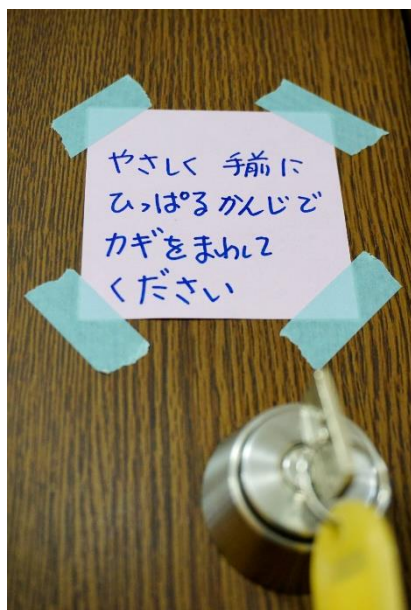 やさしく 手前に
ひっぱるかんじで
カギをまわして
ください